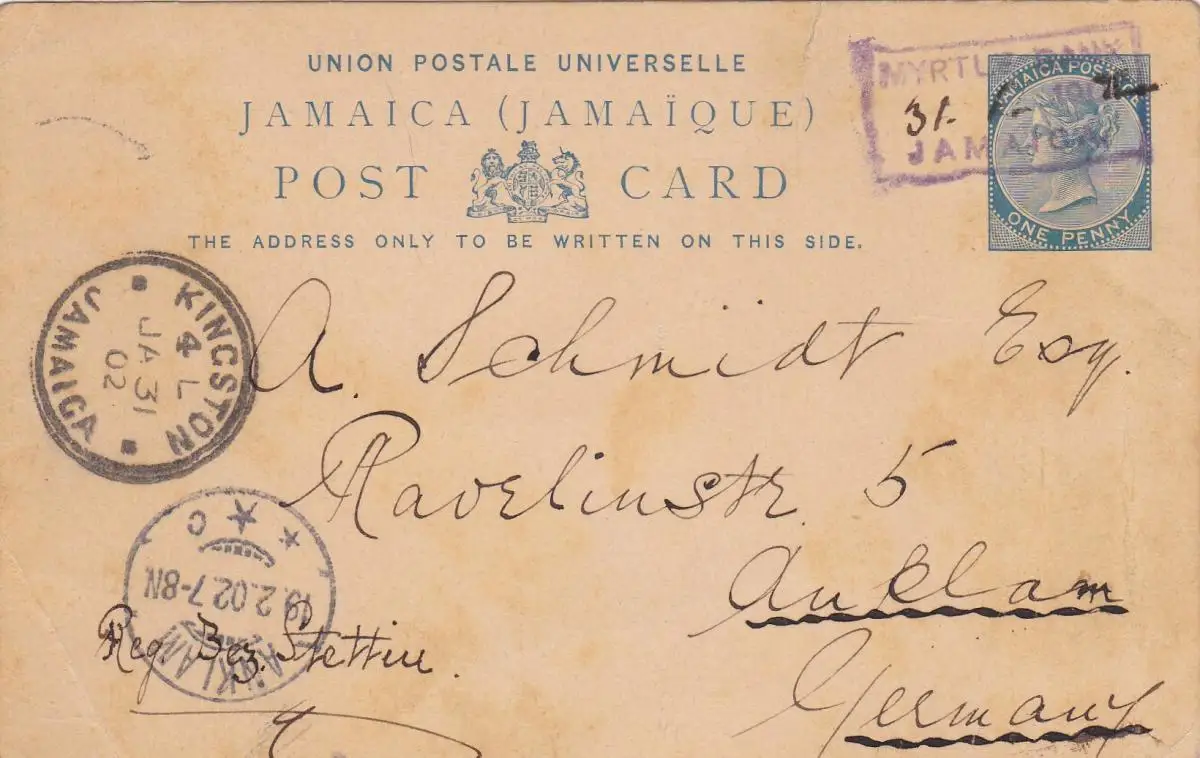 UNION POSTALE UNIVERSELLE
JAMAICA (JAMAÏQUE)
POST CARD
THE ADDRESS ONLY TO BE WRITTEN ON THIS SIDE.
MYRTLE BANK
31
JAMAICA
JAMAICA POSTAGE
ONE PENNY
KINGSTON
4 L
JA 31
02
JAMAICA
A. Schmidt Esq.
Ravelinstr. 5
Anklam
Germany
Reg. Bez. Stettin.
ANKLAM
19.2.02.7-8N
C